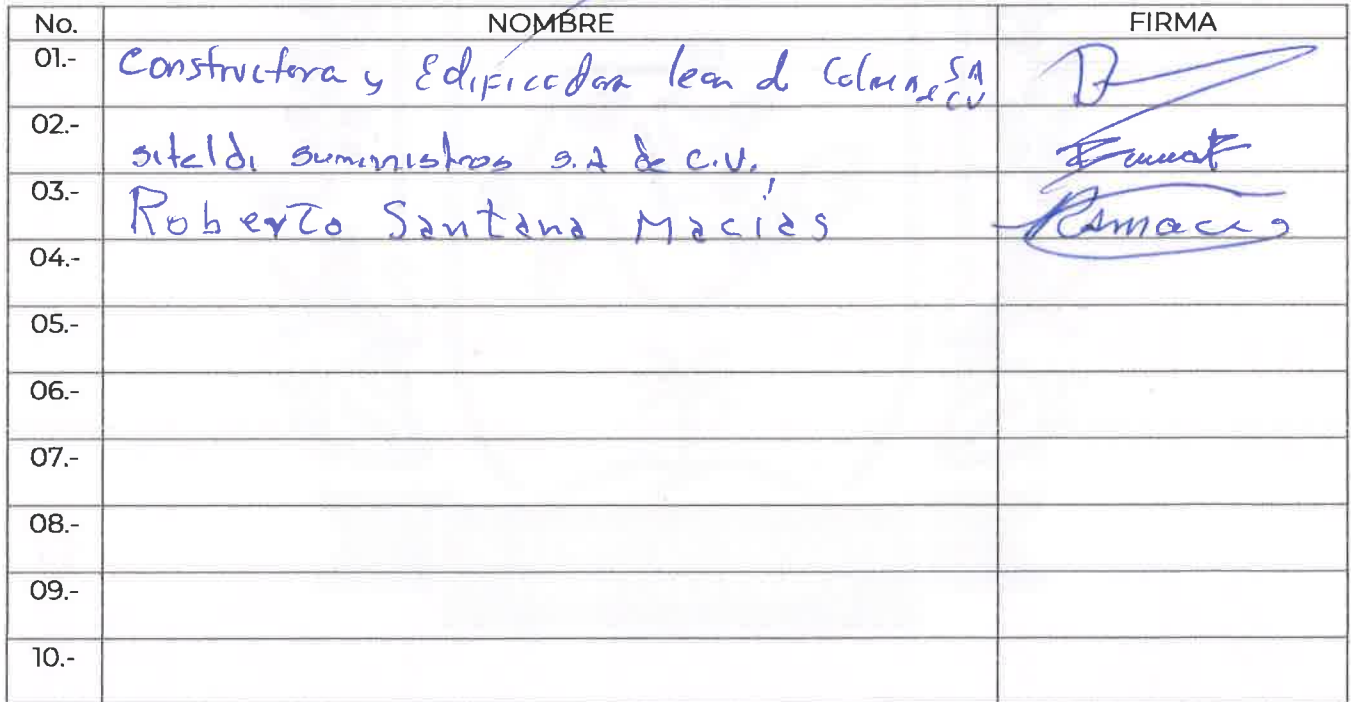 No. NOMBRE FIRMA
01.- Constructora y Edificadora leon d Colima SA de CV
02.- siteldi suministros S.A de C.V.
03.- Roberto Santana Macías
04.-
05.-
06.-
07.-
08.-
09.-
10.-